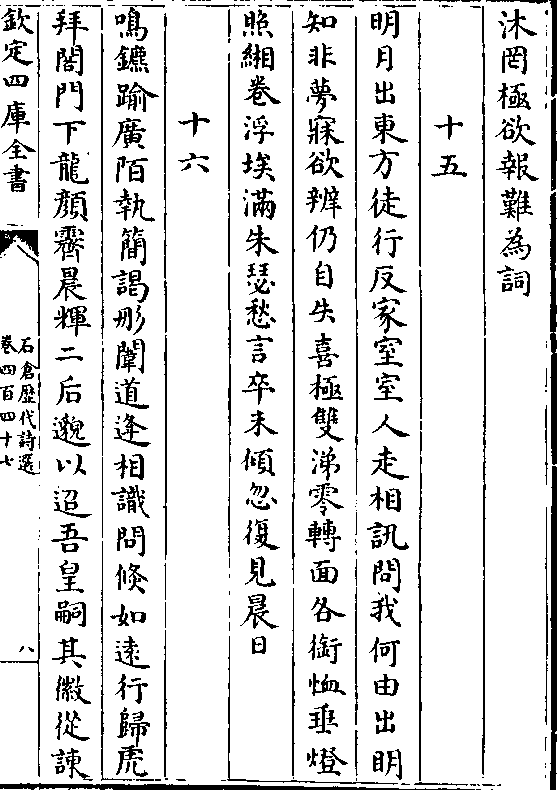 沐罔極欲報難為詞
十五
明月出東方徒行反家室室人走相訊問我何由出明
知非夢寐欲辨仍自失喜極雙涕零轉面各銜恤垂燈
照緗卷浮埃滿朱瑟愁言卒未傾忽復見晨日
十六
鳴鑣踰廣陌執簡謁彤闈道逢相識問倏如遠行歸虎
拜閤門下龍顔霽晨輝二后邈以迢吾皇嗣其徽從諫
欽定四庫全書
石倉歷代詩選
卷四百四十七
八